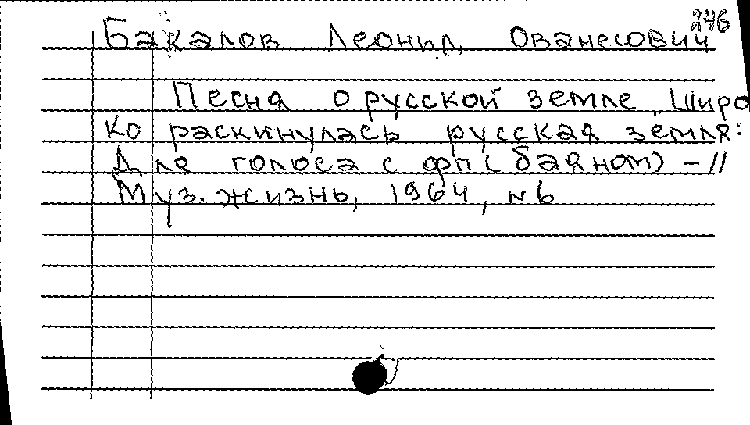 246
Бакалов Леонид Ованесович
Песня о русской земле „Широ
ко раскинулась русская земля:
Для голоса с фп (баяном) – //
Муз. жизнь, 1964, №6